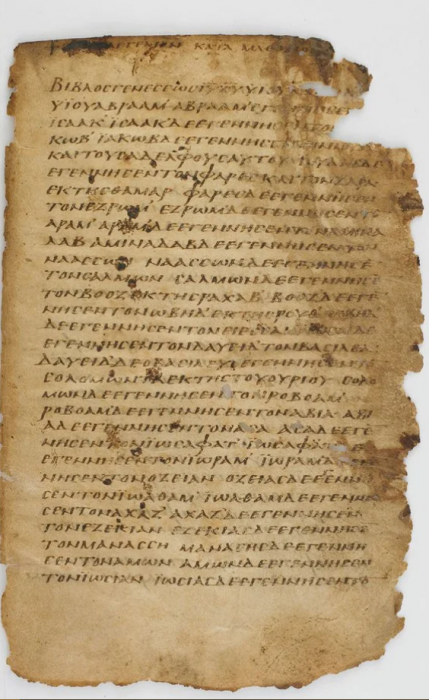 ΚΑΤΑ
ΒΙΒΛΟϹΓΕΝΕϹΕΩϹΙΥΧΥΥΙΟΥ
ΥΙΟΥΑΒΡΑΑΜ ΑΒΡΑΑΜ
ΙϹΑΑΚ ΙϹΑΑΚΔΕΕΓΕΝΝΗϹΕ
ΚΩΒ ΙΑΚΩΒΔΕΕΓΕΝΝΗϹΕ
ΚΑΙΤΟΥϹΑΔΕΛΦΟΥϹΑΥΤΟΥ ΙΟΥΔΑϹ
ΕΓΕΝΝΗϹΕΝΤΟΝΦΑΡΕϹΚΑΙΤΟΝΖΑΡΑ
ΕΚΤΗϹΘΑΜΑΡ ΦΑΡΕϹΔΕΕΓΕΝΝΗϹΕΝ
ΤΟΝΕΖΡΩΜ ΕΖΡΩΜΔΕΕΓΕΝΝΗϹΕΝΤΟ
ΑΡΑΜ ΑΡΑΜΔΕΕΓΕΝΝΗϹΕΝΤΟΝΑΜΙΝΑ
ΔΑΒ ΑΜΙΝΑΔΑΒΔΕΕΓΕΝΝΗϹΕΝΤΟΝ
ΝΑΑϹϹΩΝ ΝΑΑϹϹΩΝΔΕΕΓΕΝΝΗϹΕ
ΤΟΝϹΑΛΜΩΝ ϹΑΛΜΩΝΔΕΕΓΕΝΝΗϹΕ
ΤΟΝΒΟΟΖ ΕΚΤΗϹΡΑΧΑΒ ΒΟΟΖΔΕΕΓΕ
ΝΗϹΕΝΤΟΝΙΩΒΗΔ ΕΚΤΗϹΡΟΥΘ
ΔΕΕΓΕΝΝΗϹΕΝΤΟΝΙΕϹϹΑΙ
ΕΓΕΝΝΗϹΕΝΤΟΝΔΑΥΕΙΔ ΤΟΝΒΑϹΙΛΕΑ
ΔΑΥΕΙΔΔΕΟΒΑϹΙΛΕΥϹΕΓΕΝΝΗϹΕΝ
ϹΟΛΟΜΩΝΤΑΕΚΤΗϹΤΟΥΟΥΡΙΟΥ ϹΟΛΟ
ΜΩΝΔΕΕΓΕΝΝΗϹΕΝΤΟΝΡΟΒΟΑΜ
ΡΟΒΟΑΜΔΕΕΓΕΝΝΗϹΕΝΤΟΝΑΒΙΑ ΑΒΙ
ΑΔΕΕΓΕΝΝΗϹΕΝΤΟΝΑϹΑ ΑϹΑΔΕΕΓΕ
ΝΗϹΕΝΤΟΝΙΩϹΑΦΑΤ ΙΩϹΑΦΑΤ
ΕΓΕΝΝΗϹΕΝΤΟΝΙΩΡΑΜ ΙΩΡΑΜΔΕ
ΝΗϹΕΝΤΟΝΟΖΕΙΑΝ ΟΖΕΙΑϹΔΕΕΓΕΝΝΗ
ϹΕΝΤΟΝΙΩΑΘΑΜ ΙΩΑΘΑΜΔΕΕΓΕΝΝΗ
ϹΕΝΤΟΝΑΧΑΖ ΑΧΑΖΔΕΕΓΕΝΝΗϹΕΝ
ΤΟΝΕΖΕΚΙΑΝ ΕΖΕΚΙΑϹΔΕΕΓΕΝΝΗϹΕ
ΤΟΝΜΑΝΑϹϹΗ ΜΑΝΑϹϹΗϹΔΕΕΓΕΝΝΗ
ϹΕΝΤΟΝΑΜΩΝ ΑΜΩΝΔΕΕΓΕΝΝΗϹΕΝ
ΤΟΝΙΩϹΙΑΝ ΙΩϹΙΑϹΔΕΕΓΕΝΝΗϹΕΝΤΟ